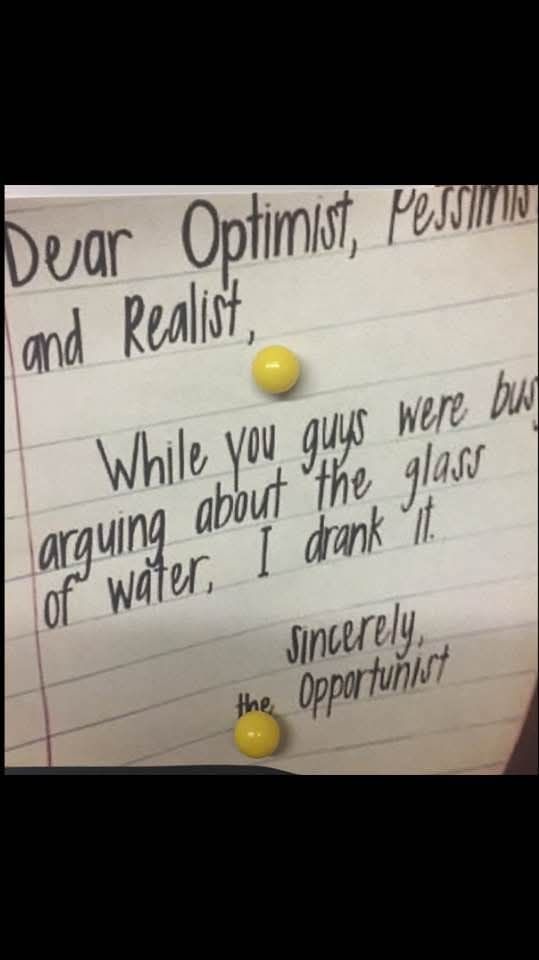 Dear Optimist, Pessimis
and Realist,
While you guys were bus
arguing about the glass
of water, I drank it.
Sincerely,
the Opportunist